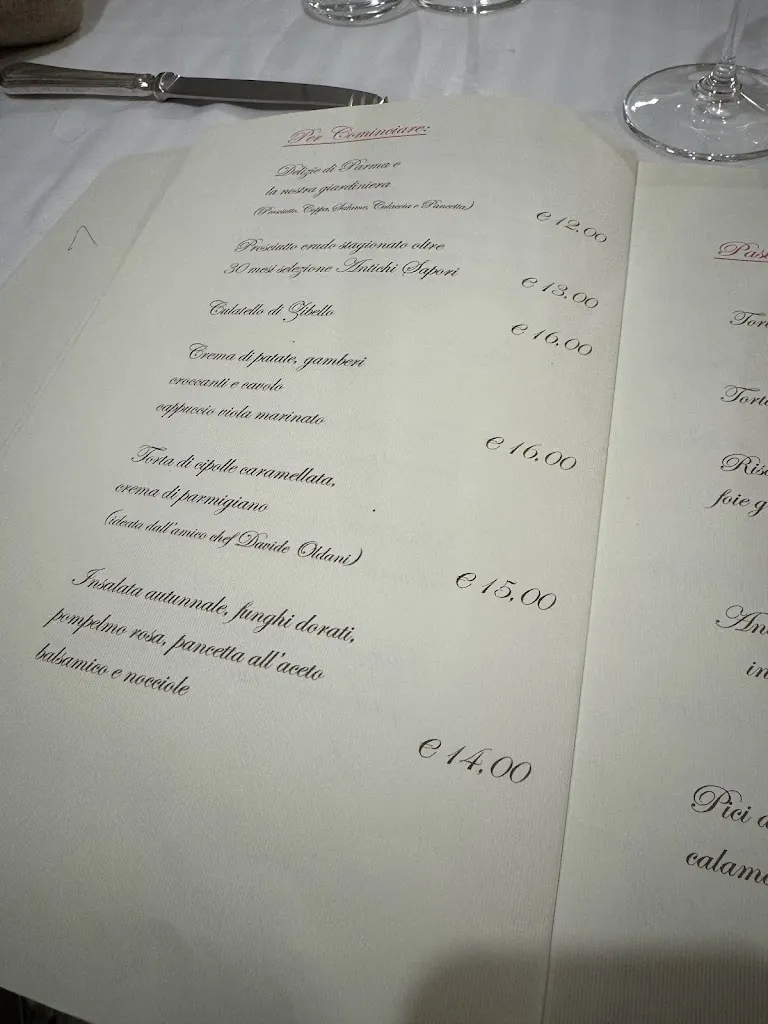 Per Cominciare:
Delizie di Parma e
la nostra giardiniera
(Prosciutto, Coppa, Salame, Culaccia e Pancetta)
€ 12,00
Prosciutto crudo stagionato oltre
30 mesi selezione Antichi Sapori
€ 13,00
Culatello di Zibello
€ 16,00
Crema di patate, gamberi
croccanti e cavolo
cappuccio viola marinato
€ 16,00
Torta di cipolle caramellata,
crema di parmigiano
(ideata dall'amico chef Davide Oldani)
€ 15,00
Insalata autunnale, funghi dorati,
pompelmo rosa, pancetta all'aceto
balsamico e nocciole
€ 14,00
foie g
in
Pici a
calama